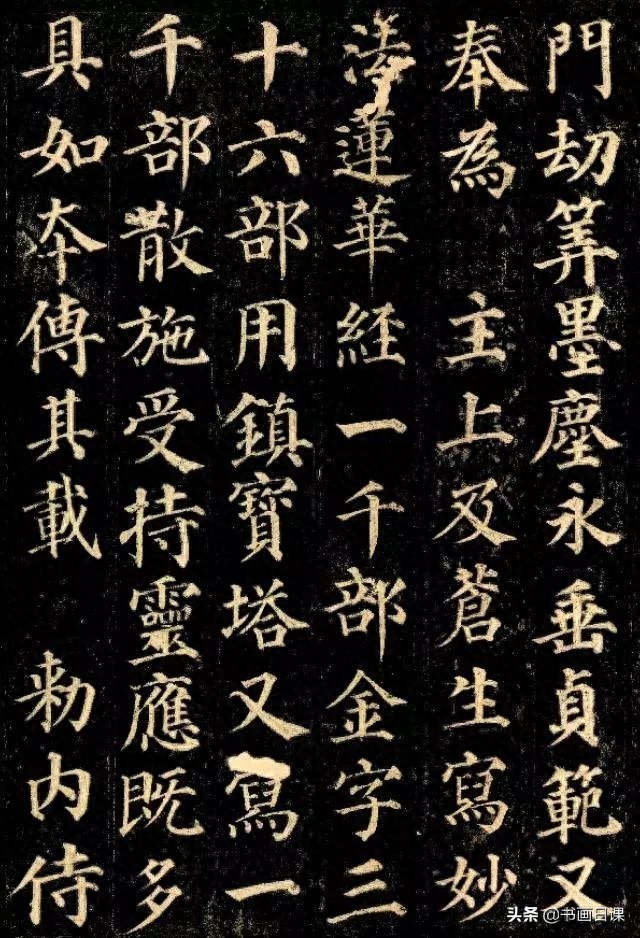 門劫筭墨塵永垂貞範又
奉為 主上及蒼生寫妙
法蓮華經一千部金字三
十六部用鎮寶塔又寫一
千部散施受持靈應既多
具如本傳其載 勅内侍
头条 @书画日课